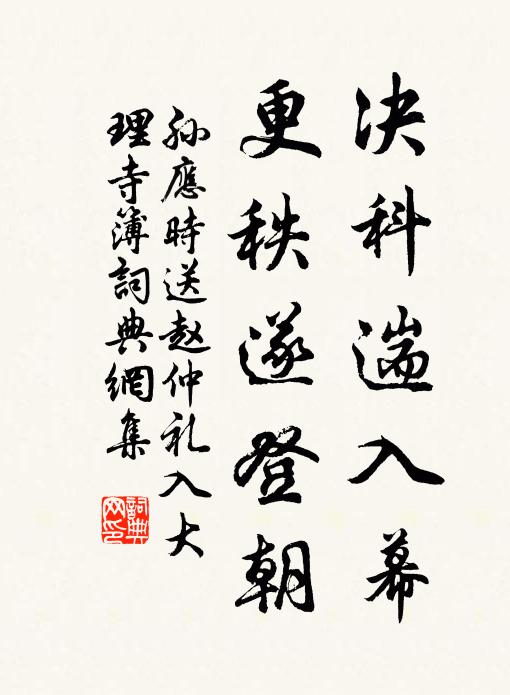 决科遄入幕
更秩遂登朝
孙應時送赵仲礼入大
理寺簿詞典網集
詞典
网印